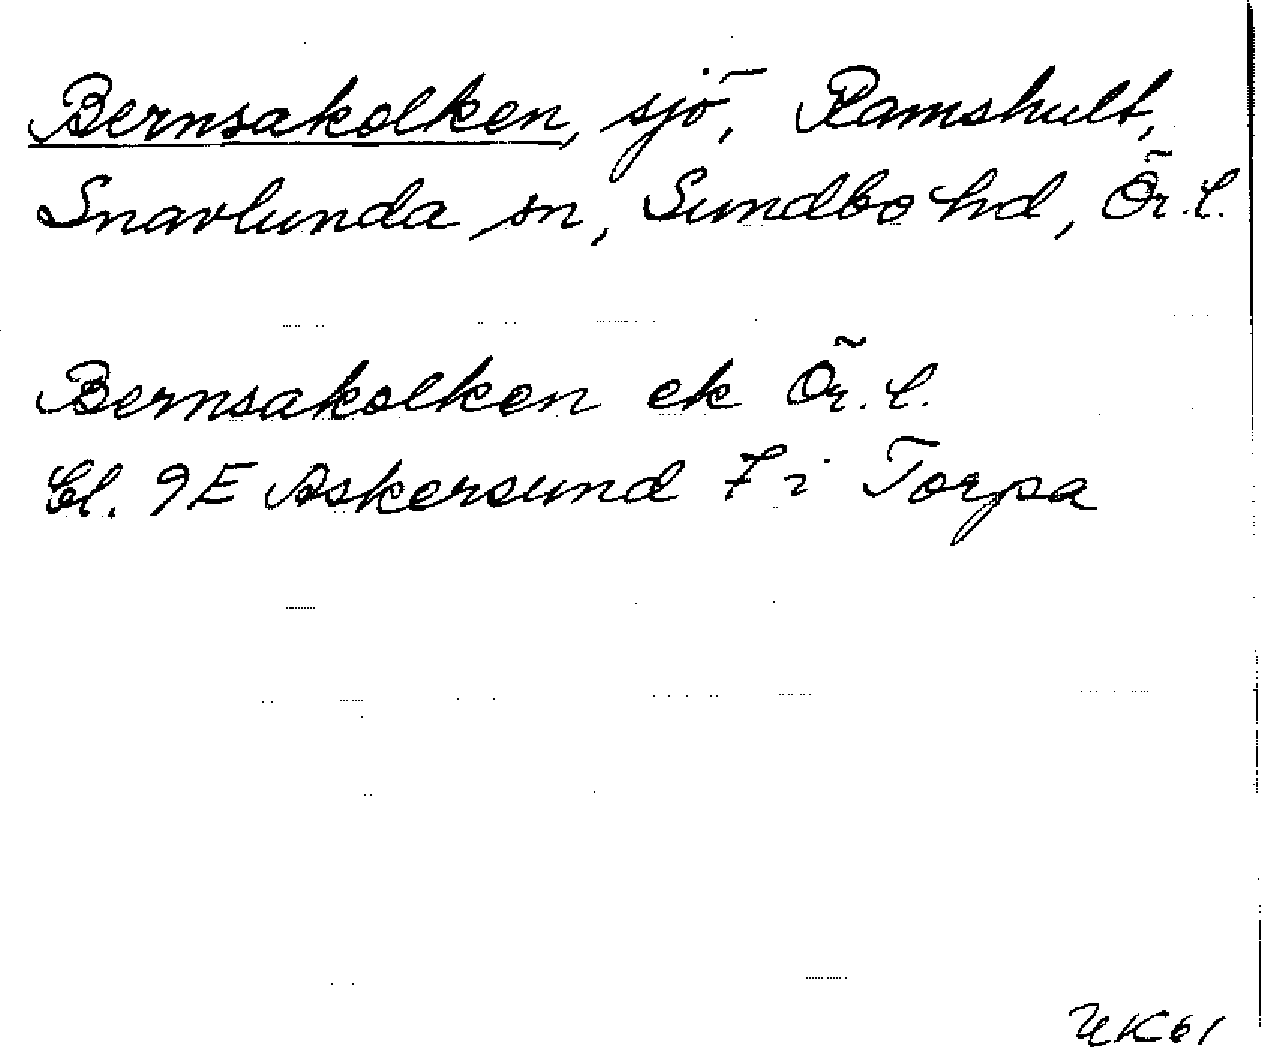 Bernsakolken, sjö, Ramshult,
Snavlunda sn, Sundbo hd, Ör. l.
Bernsakolken ek Ör. l.
bl. 9E Askersund 7 i Torpa